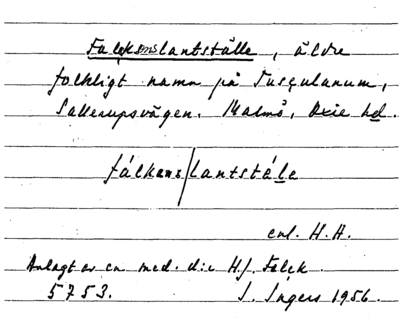 Falckenslantställe, äldre
folkligt namn på Tusculanum,
Sallerupsvägen. Malmö, Oxie hd.
fálkens/lantstále
enl. H.H.
Anlagt av en med. dr H.J. Falck
5753. I. Ingers 1956.